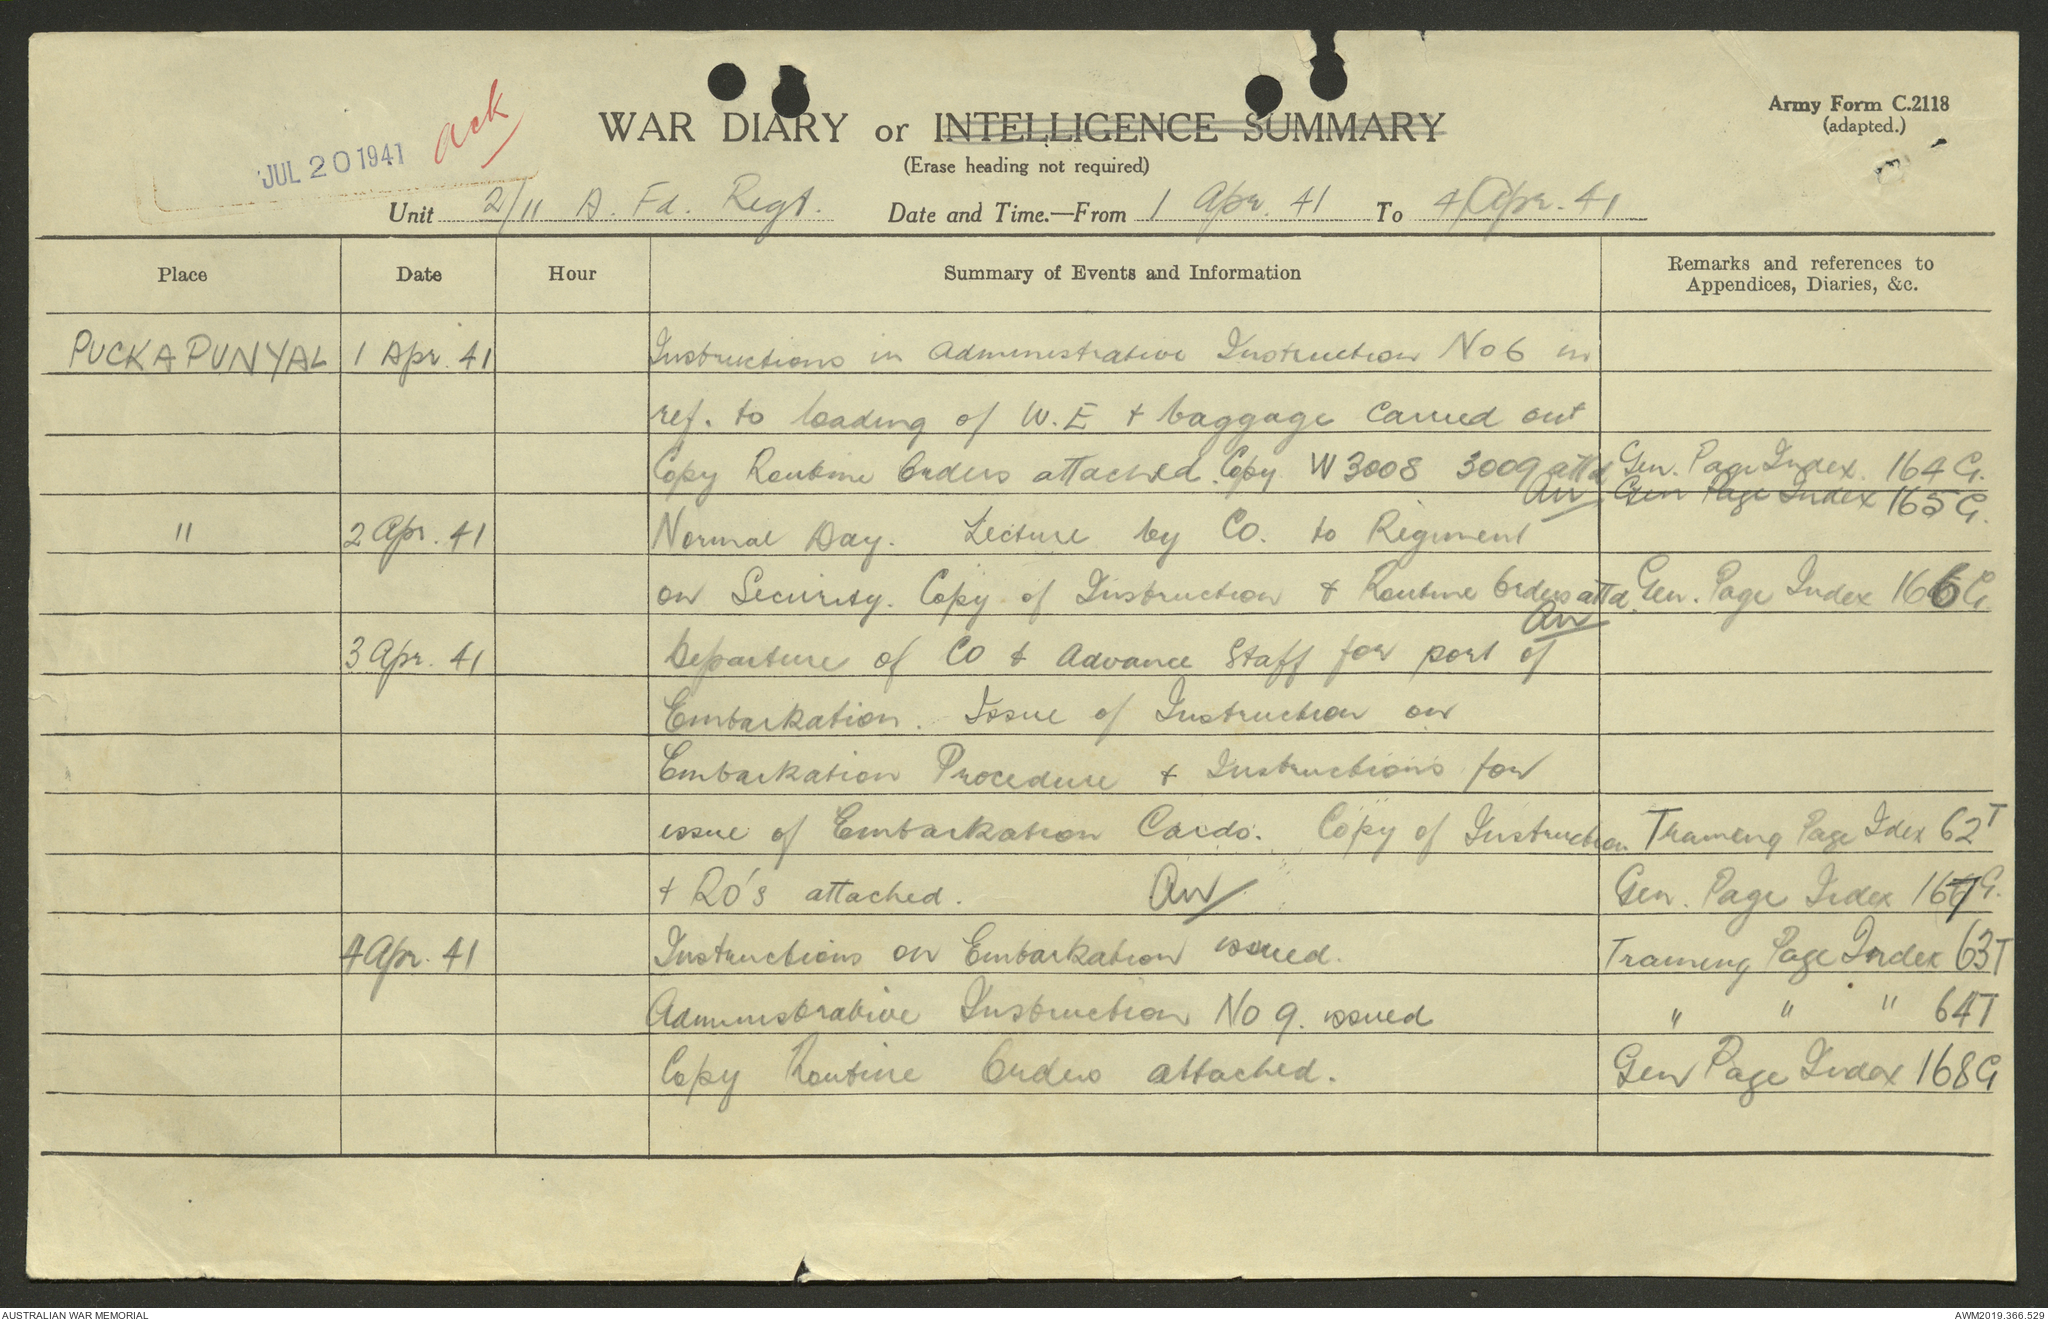 JUL 20 1941
Ack
WAR DIARY or INTELLIGENCE SUMMARY
(Erase heading not required)
Army Form C.2118
(adapted.)
Unit 2/11 A. Fd. Regt. Date and Time.—From 1 Apr. 41 To 4 Apr. 41
Place Date Hour Summary of Events and Information Remarks and references to
Appendices, Diaries, &c.
PUCKAPUNYAL 1 Apr. 41 Instructions in Administrative Instruction No 6 in
ref. to loading of W.E + baggage carried out
Copy Routine Orders attached. Copy W3008 3009 attd Gen. Page Index. 164 G.
AW Gen Page Index 165 G.
" 2 Apr. 41 Normal Day. Lecture by CO. to Regiment
on Security. Copy of Instruction + Routine Orders attd. Gen. Page Index 166 G
AW
3 Apr. 41 Departure of CO + Advance Staff for port of
Embarkation. Issue of Instruction on
Embarkation Procedure + Instructions for
issue of Embarkation Cards. Copy of Instruction Training Page Idex 62T
+ RO's attached. AW Gen. Page Index 167 G.
4 Apr. 41 Instructions on Embarkation issued. Training Page Index 63T
Administrative Instruction No 9. issued " " " 64T
Copy Routine Orders attached. Gen Page Index 168G
AUSTRALIAN WAR MEMORIAL AWM2019.366.529